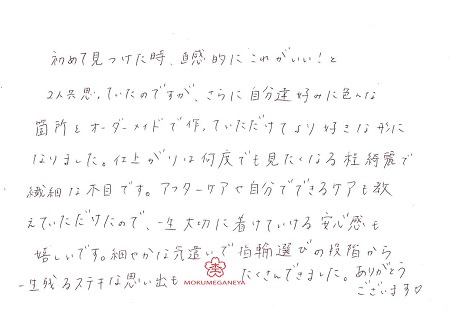 初めて見つけた時、直感的にこれがいい！と
2人共思っていたのですが、さらに自分達好みに色んな
箇所をオーダーメイドで作っていただけてより好きな形に
なりました。仕上がりは何度でも見たくなる程綺麗で
繊細な木目です。アフターケアや自分でできるケアも教
えていただけたので、一生大切に着けていける安心感も
嬉しいです。細やかな気遣いで指輪選びの段階から
一生残るステキな思い出も たくさんできました。ありがとう
ございます♡
MOKUMEGANEYA